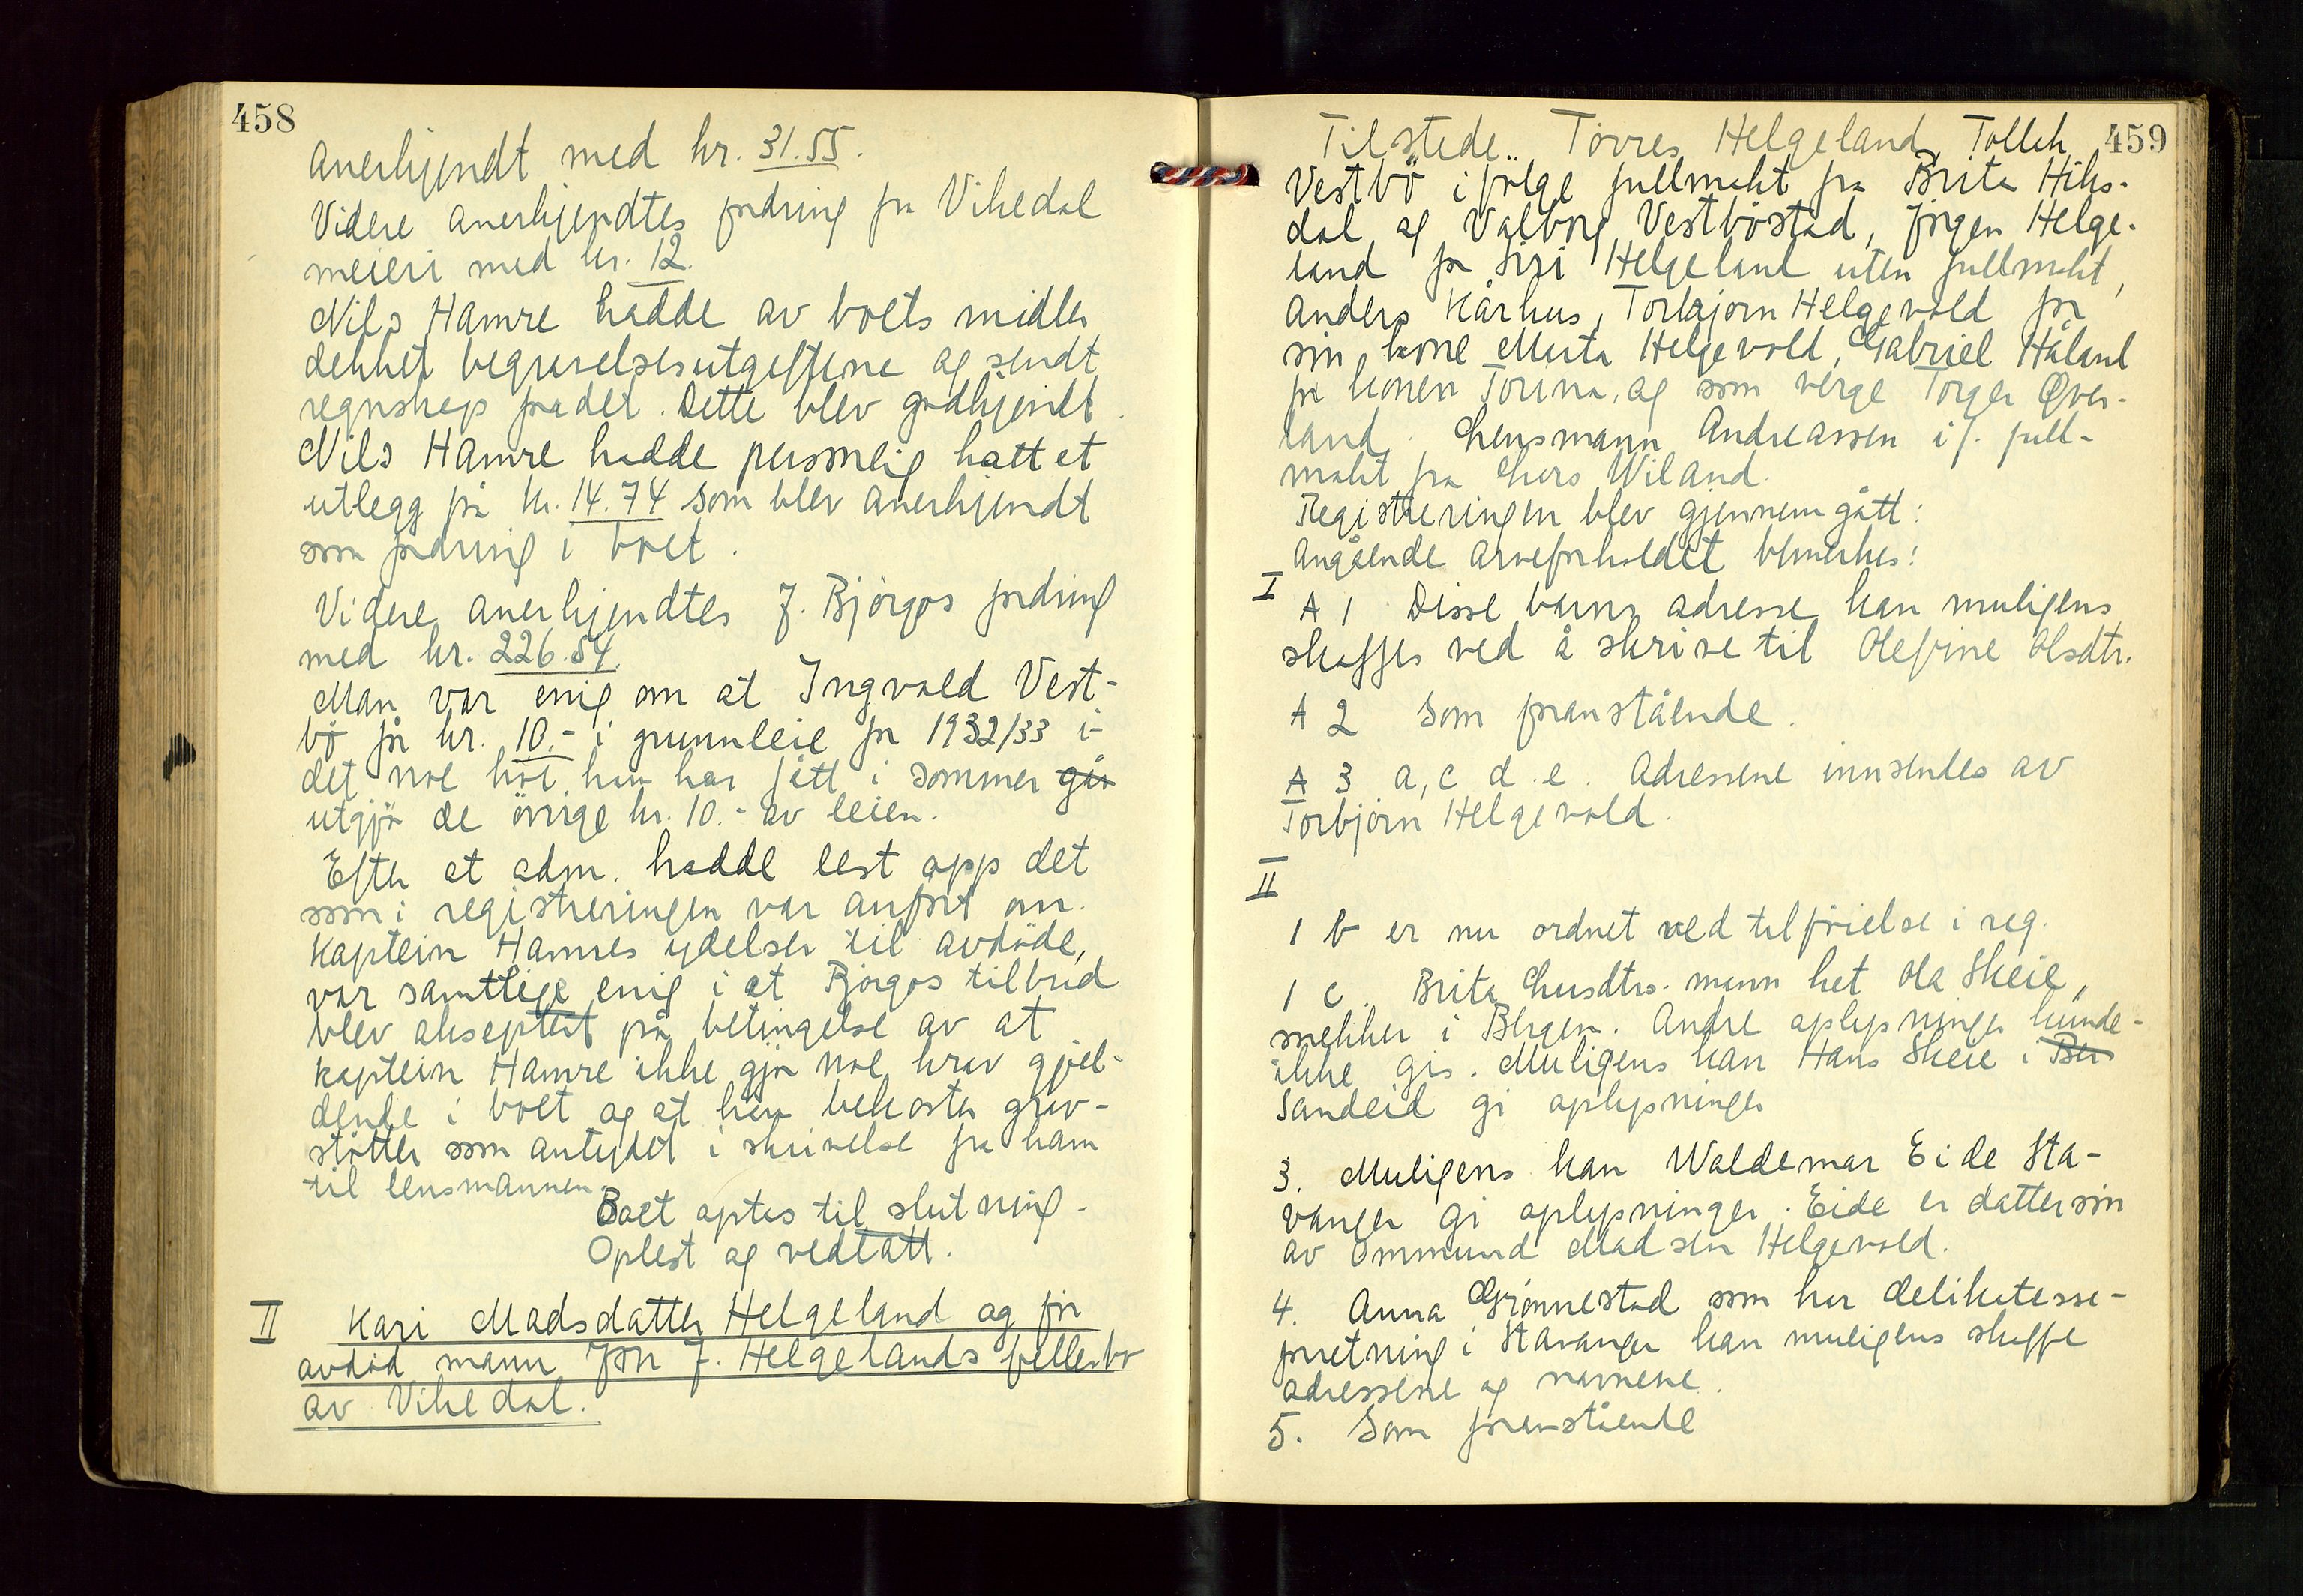 458
anerkjendt med kr. 31.55.
Videre anerkjendtes fordring fra Vikedal
meieri med kr. 12.
Nils Hamre hadde av boets midler
dekket begravelsesutgiftene og sendt
regnskap for det. Dette blev godkjendt.
Nils Hamre hadde personlig hatt et
utlegg på kr. 14.74 som blev anerkjendt
som fordring i boet.
Videre anerkjendtes J. Bjørgos fordring
med kr. 226.54.
Man var enig om at Ingvald Vest-
bø får kr. 10.- i grunnleie for 1932/33 i-
det noe høi han har fått i sommer går
utgjør de øvrige kr. 10.- av leien.
Efter at adm. hadde lest opp det
som i registreringen var anført om
kaptein Hamres ydelser til avdøde,
var samtlige enig i at Bjørgos tilbud
blev akseptert på betingelse av at
kaptein Hamre ikke gjør noe krav gjel-
dende i boet og at han bekoster grav-
støtter som antydet i skrivelse fra ham
til lensmannen.
Boet optas til slutning.
Oplest og vedtatt.
II Kari Madsdatter Helgeland og før
avdød mann Jon J. Helgelands fellesbo
av Vikedal.
459
Tilstede: Tørres Helgeland, Tolleik
Vestbø ifølge fullmakt fra Brita Hiks-
dal og Valborg Vestbøstad, Jørgen Helge-
land for Siri Helgeland uten fullmakt,
Anders Kårhus, Torbjørn Helgevold for
sin kone Marta Helgevold, Gabriel Håland
for konen Torina, og som verge Torger Øver-
land. Lensmann Andreassen if. full-
makt fra Lars Wiland.
Registreringen blev gjennemgått:
Angående arveforholdet bemerkes:
I
A 1 Disse barns adresse kan muligens
skaffes ved å skrive til Olefine Olsdtr.
A 2 Som foranstående.
A 3 a, c d. e. Adressene innsendes av
Torbjørn Helgevold.
II
1 b er nu ordnet ved tilføielse i reg.
1 c. Brita Larsdtrs. mann het Ola Skeie,
mekker i Bergen. Andre oplysninger kunde
ikke gis. Muligens kan Hans Skeie i Ber
Sandeid gi oplysninger
3. Muligens kan Waldemar Eide Sta-
vanger gi oplysninger. Eide er dattersøn
av Ommund Madsen Helgevold.
4. Anna Grønnestad som har delikatesse-
forretning i Stavanger kan muligens skaffe
adressene og navnene.
5. Som foranstående